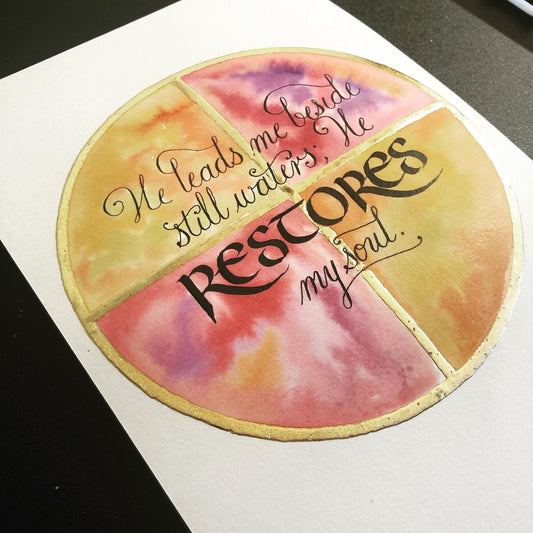 He leads me beside
still waters; He
RESTORES
my soul.